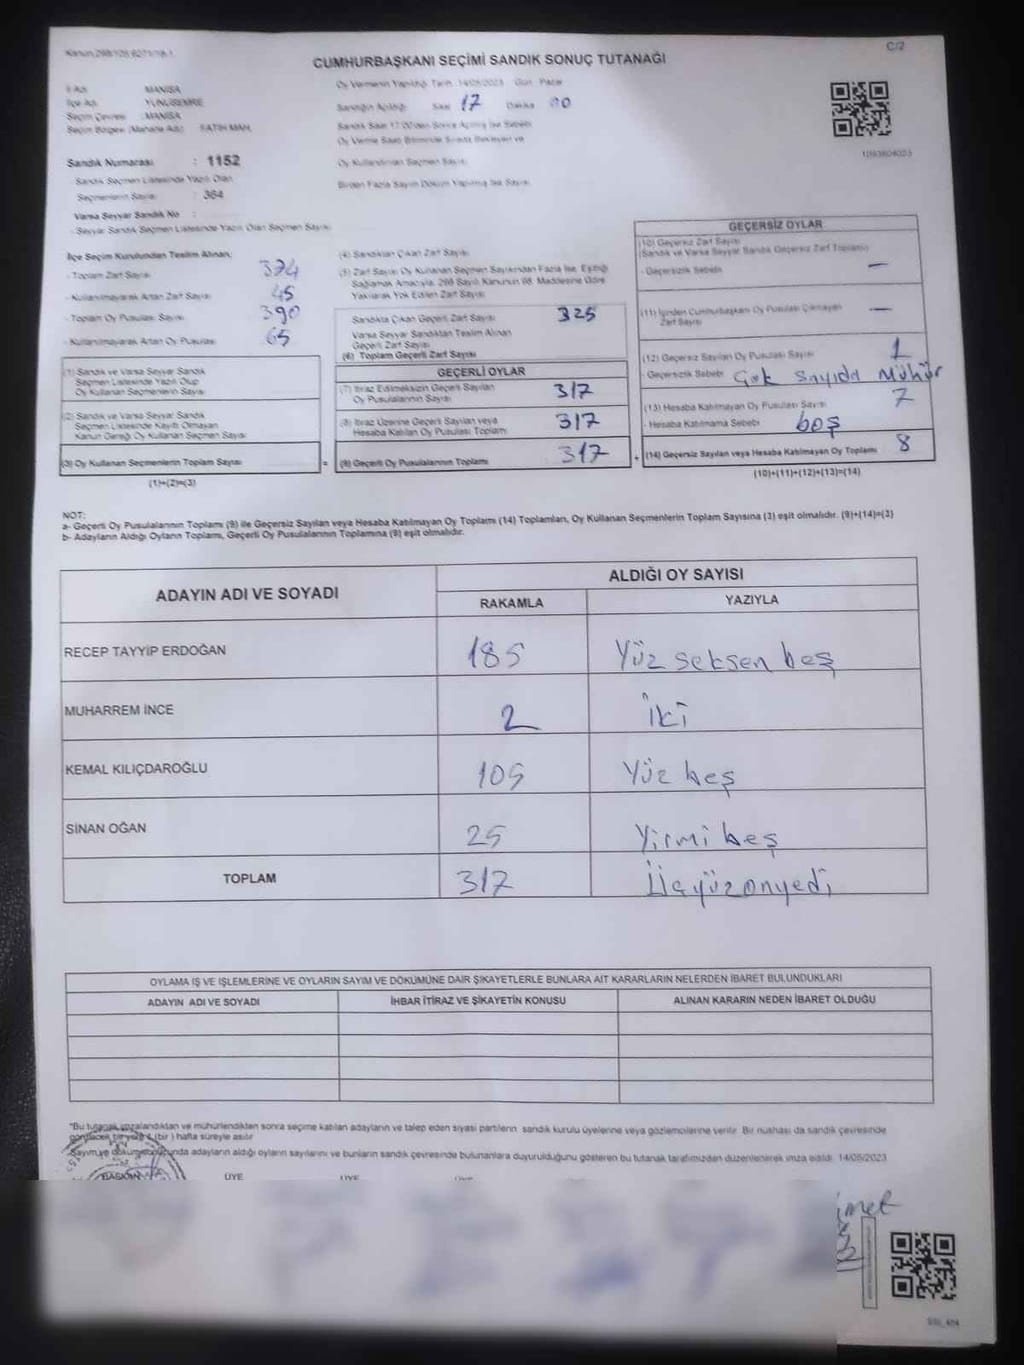 Kanun 298/105 6271/19.1
C/2
CUMHURBAŞKANI SEÇİMİ SANDIK SONUÇ TUTANAĞI
İl Adı MANİSA
İlçe Adı YUNUSEMRE
Seçim Çevresi : MANİSA
Seçim Bölgesi (Mahalle Adı) : FATİH MAH.
Sandık Numarası : 1152
Sandık Seçmen Listesinde Yazılı Olan
Seçmenlerin Sayısı : 364
Varsa Seyyar Sandık No
- Seyyar Sandık Seçmen Listesinde Yazılı Olan Seçmen Sayısı
Oy Vermenin Yapıldığı Tarih : 14/05/2023 Gün : Pazar
Sandığın Açıldığı Saat 17 Dakika 00
Sandık Saat 17:00'den Sonra Açılmış İse Sebebi
Oy Verme Saati Bitiminde Sırada Bekleyen ve
Oy Kullandırılan Seçmen Sayısı
Birden Fazla Sayım Döküm Yapılmış İse Sayısı
1093804023
İlçe Seçim Kurulundan Teslim Alınan;
- Toplam Zarf Sayısı 374
- Kullanılmayarak Artan Zarf Sayısı 45
- Toplam Oy Pusulası Sayısı 390
- Kullanılmayarak Artan Oy Pusulası 65
(1) Sandık ve Varsa Seyyar Sandık
Seçmen Listesinde Yazılı Olup
Oy Kullanan Seçmenlerin Sayısı
(2) Sandık ve Varsa Seyyar Sandık
Seçmen Listesinde Kayıtlı Olmayan
Kanun Gereği Oy Kullanan Seçmen Sayısı
(3) Oy Kullanan Seçmenlerin Toplam Sayısı =
(1)+(2)=(3)
(4) Sandıktan Çıkan Zarf Sayısı
(5) Zarf Sayısı Oy Kullanan Seçmen Sayısından Fazla İse, Eşitliği
Sağlamak Amacıyla, 298 Sayılı Kanunun 98. Maddesine Göre
Yakılarak Yok Edilen Zarf Sayısı
Sandıkta Çıkan Geçerli Zarf Sayısı 325
Varsa Seyyar Sandıktan Teslim Alınan
Geçerli Zarf Sayısı
(6) Toplam Geçerli Zarf Sayısı
GEÇERLİ OYLAR
(7) İtiraz Edilmeksizin Geçerli Sayılan
Oy Pusulalarının Sayısı 317
(8) İtiraz Üzerine Geçerli Sayılan veya
Hesaba Katılan Oy Pusulası Toplamı 317
(9) Geçerli Oy Pusulalarının Toplamı 317 +
GEÇERSİZ OYLAR
(10) Geçersiz Zarf Sayısı
(Sandık ve Varsa Seyyar Sandık Geçersiz Zarf Toplamı)
- Geçersizlik Sebebi —
(11) İçinden Cumhurbaşkanı Oy Pusulası Çıkmayan
Zarf Sayısı —
(12) Geçersiz Sayılan Oy Pusulası Sayısı 1
- Geçersizlik Sebebi Çok Sayıda Mühür
(13) Hesaba Katılmayan Oy Pusulası Sayısı 7
- Hesaba Katılmama Sebebi boş
(14) Geçersiz Sayılan veya Hesaba Katılmayan Oy Toplamı 8
(10)+(11)+(12)+(13)=(14)
NOT:
a- Geçerli Oy Pusulalarının Toplamı (9) ile Geçersiz Sayılan veya Hesaba Katılmayan Oy Toplamı (14) Toplamları, Oy Kullanan Seçmenlerin Toplam Sayısına (3) eşit olmalıdır. (9)+(14)=(3)
b- Adayların Aldığı Oyların Toplamı, Geçerli Oy Pusulalarının Toplamına (9) eşit olmalıdır.
ADAYIN ADI VE SOYADI
ALDIĞI OY SAYISI
RAKAMLA YAZIYLA
RECEP TAYYİP ERDOĞAN 185 Yüz seksen beş
MUHARREM İNCE 2 İki
KEMAL KILIÇDAROĞLU 105 Yüz beş
SİNAN OĞAN 25 Yirmi beş
TOPLAM 317 Üçyüzonyedi
OYLAMA İŞ VE İŞLEMLERİNE VE OYLARIN SAYIM VE DÖKÜMÜNE DAİR ŞİKAYETLERLE BUNLARA AİT KARARLARIN NELERDEN İBARET BULUNDUKLARI
ADAYIN ADI VE SOYADI İHBAR İTİRAZ VE ŞİKAYETİN KONUSU ALINAN KARARIN NEDEN İBARET OLDUĞU
*Bu tutanak imzalandıktan ve mühürlendikten sonra seçime katılan adayların ve talep eden siyasi partilerin sandık kurulu üyelerine veya gözlemcilerine verilir. Bir nüshası da sandık çevresinde
görülecek bir yere 1 (bir) hafta süreyle asılır
Sayım ve dökümü sonucunda adayların aldığı oyların sayılarını ve bunların sandık çevresinde bulunanlara duyurulduğunu gösteren bu tutanak tarafımızdan düzenlenerek imza edildi. 14/05/2023
BAŞKAN ÜYE ÜYE Üye